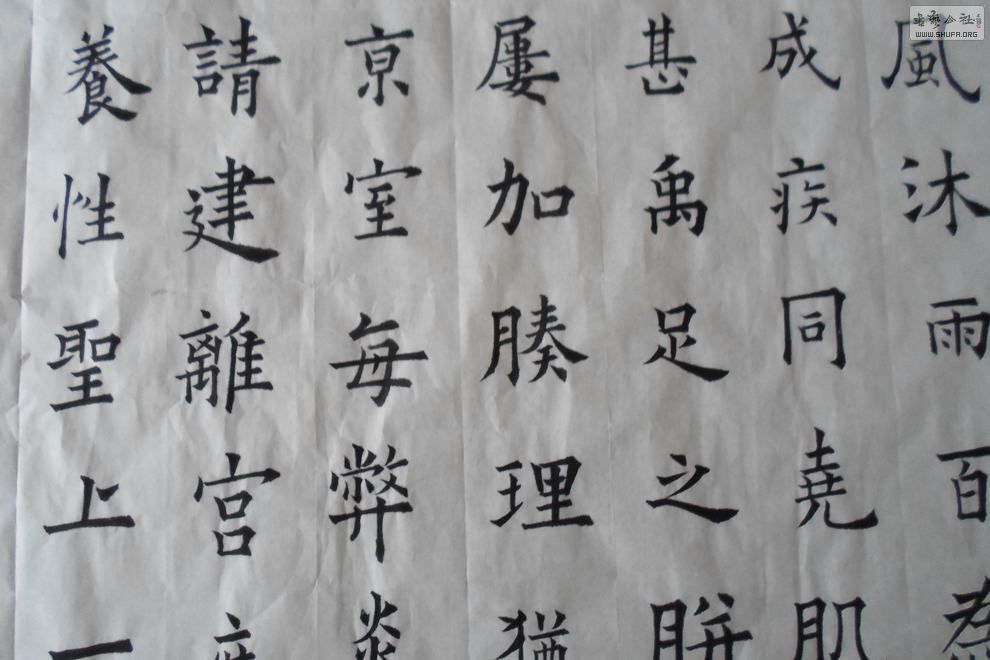 風沐雨百為
成疾同堯肌
甚禹足之胼
屢加腠理猶
亰室每弊炎
請建離宮庶
養性聖上一
書藝公社
WWW.SHUFA.ORG